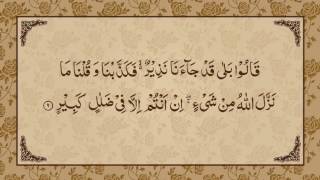 قَالُوْا بَلٰى قَدْ جَآءَنَا نَذِيْرٌ ۙ۬ فَكَذَّبْنَا وَ قُلْنَا مَا
نَزَّلَ اللّٰهُ مِنْ شَيْءٍ ۚۖ اِنْ اَنْتُمْ اِلَّا فِيْ ضَلٰلٍ كَبِيْرٍ ۝۹